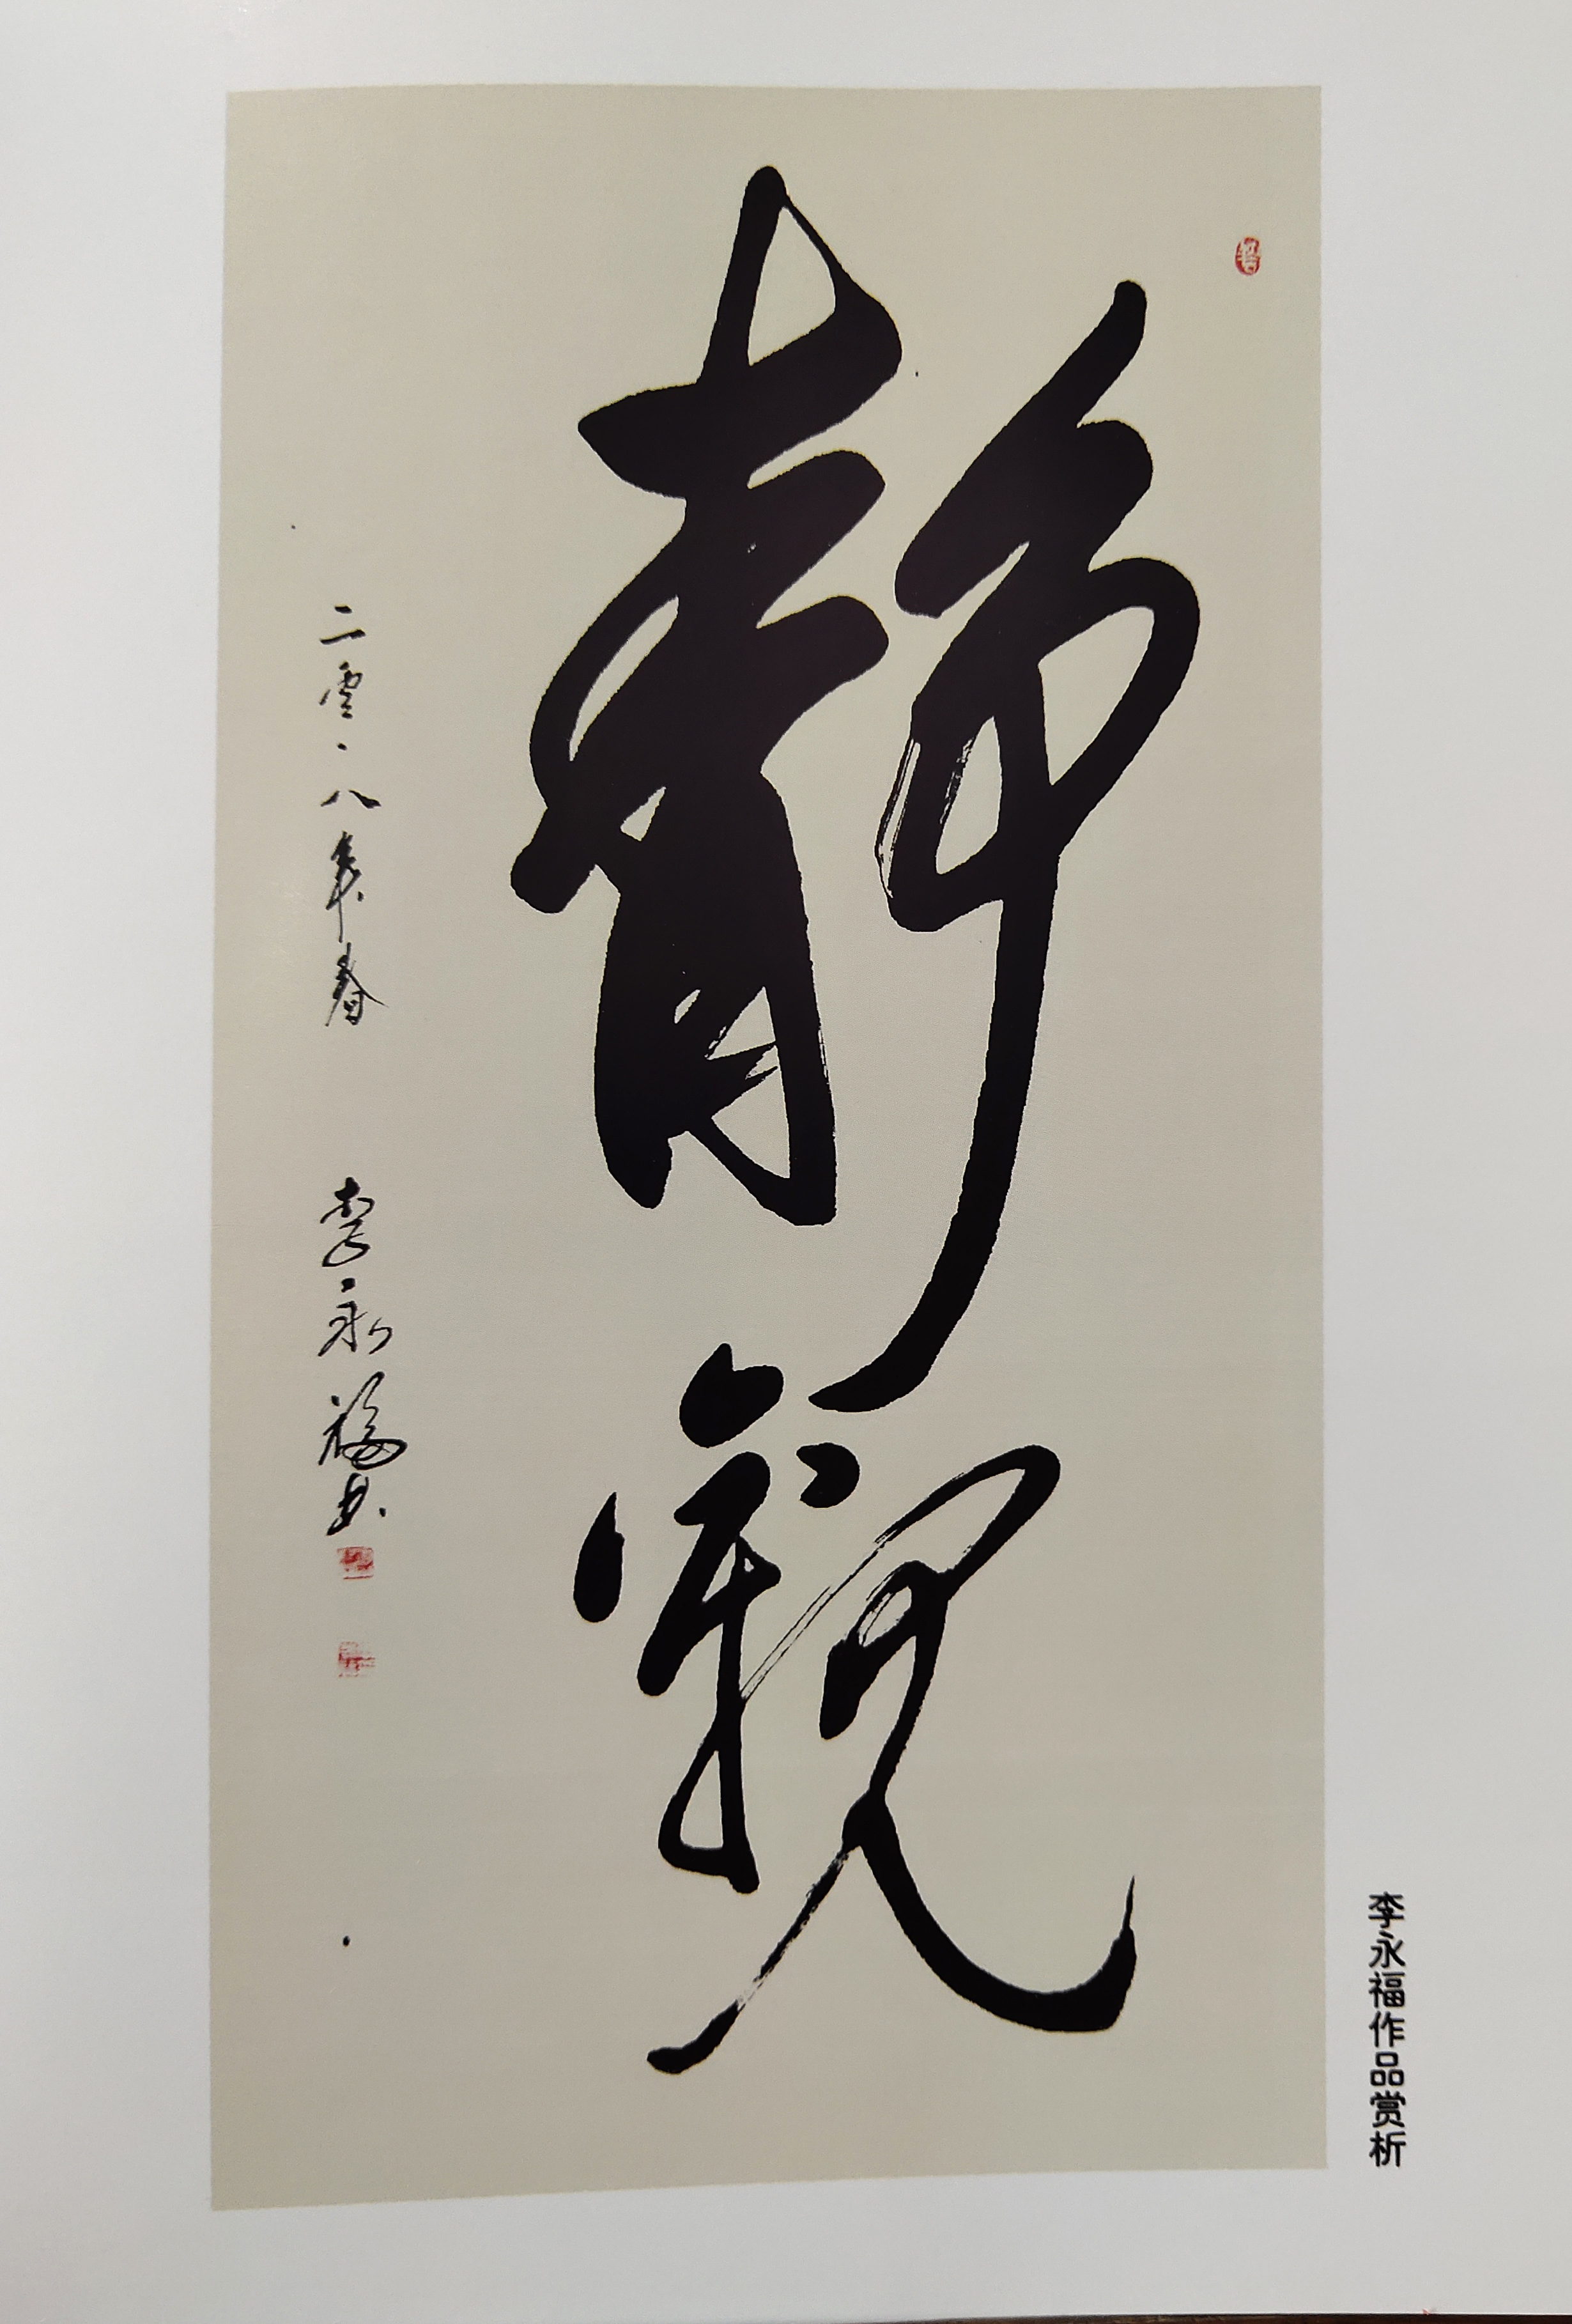 靜觀
二零一八年春 李永福书
李永福作品赏析